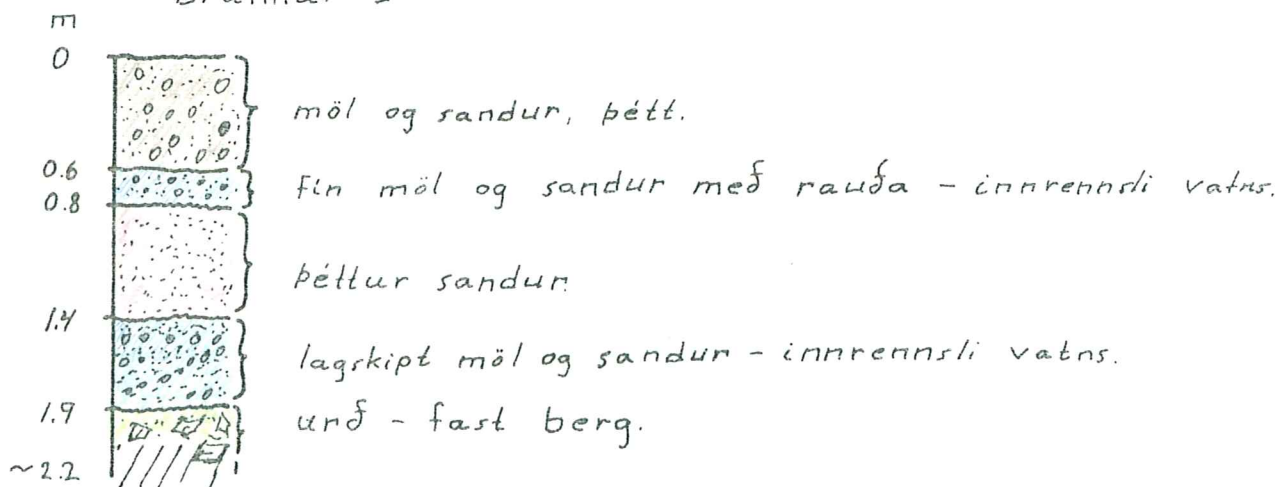 m
0
möl og sandur, þétt.
0.6
fín möl og sandur með rauða - innrennsli vatns.
0.8
þéttur sandur.
1.4
lagskipt möl og sandur - innrennsli vatns.
1.9
urð - fast berg.
~2.2